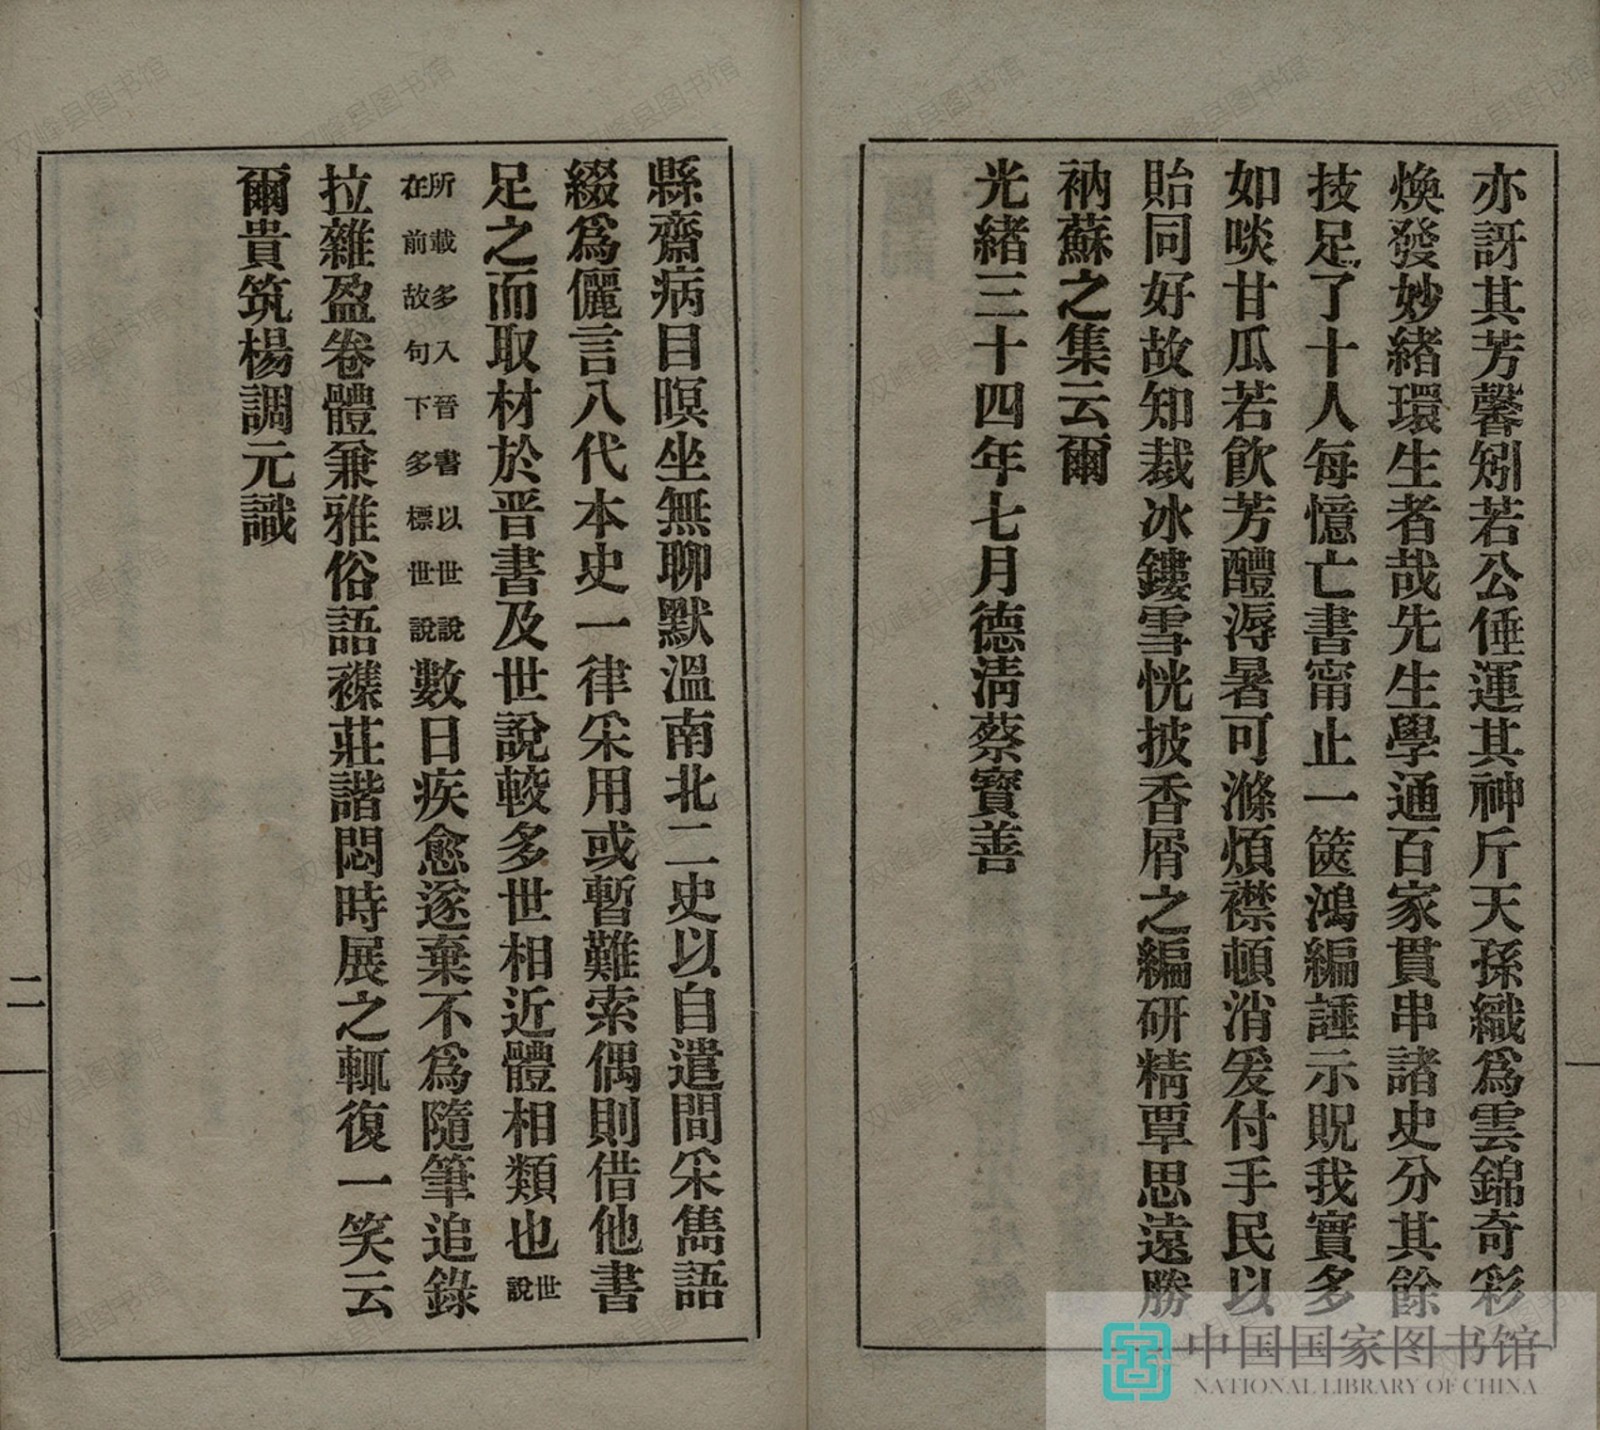 亦訝其芳馨矧若公倕運其神斤天孫織爲雲錦奇彩
煥發妙緒環生者哉先生學通百家貫串諸史分其餘
技足了十人每憶亡書甯止一篋鴻編誰示貺我實多
如啖甘瓜若飲芳醴溽暑可滌煩襟頓消爰付手民以
貽同好故知裁冰鏤雪恍披香屑之編研精覃思遠勝
衲蘇之集云爾
光緒三十四年七月德淸蔡寶善
縣齋病目暝坐無聊默溫南北二史以自遣間采雋語
綴爲儷言八代本史一律采用或暫難索偶則借他書
足之而取材於晋書及世說較多世相近體相類也世說
所載多入晉書以世說在前故句下多標世說數日疾愈遂棄不爲隨筆追錄
拉雜盈卷體兼雅俗語襍莊諧悶時展之輒復一笑云
爾貴筑楊調元識
二
中国国家图书馆
NATIONAL LIBRARY OF CHINA
双峰县图书馆